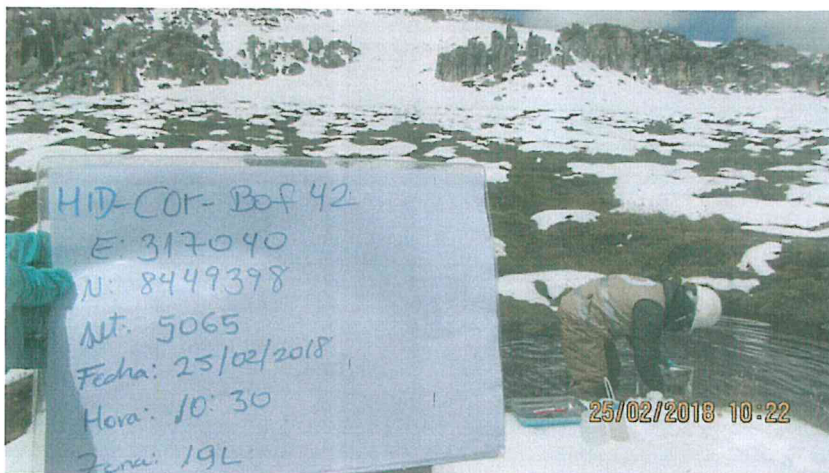 HID-Cor-Bof 42
E: 317040
N: 8449398
Alt: 5065
Fecha: 25/02/2018
Hora: 10:30
Zona: 19L
25/02/2018 10:22